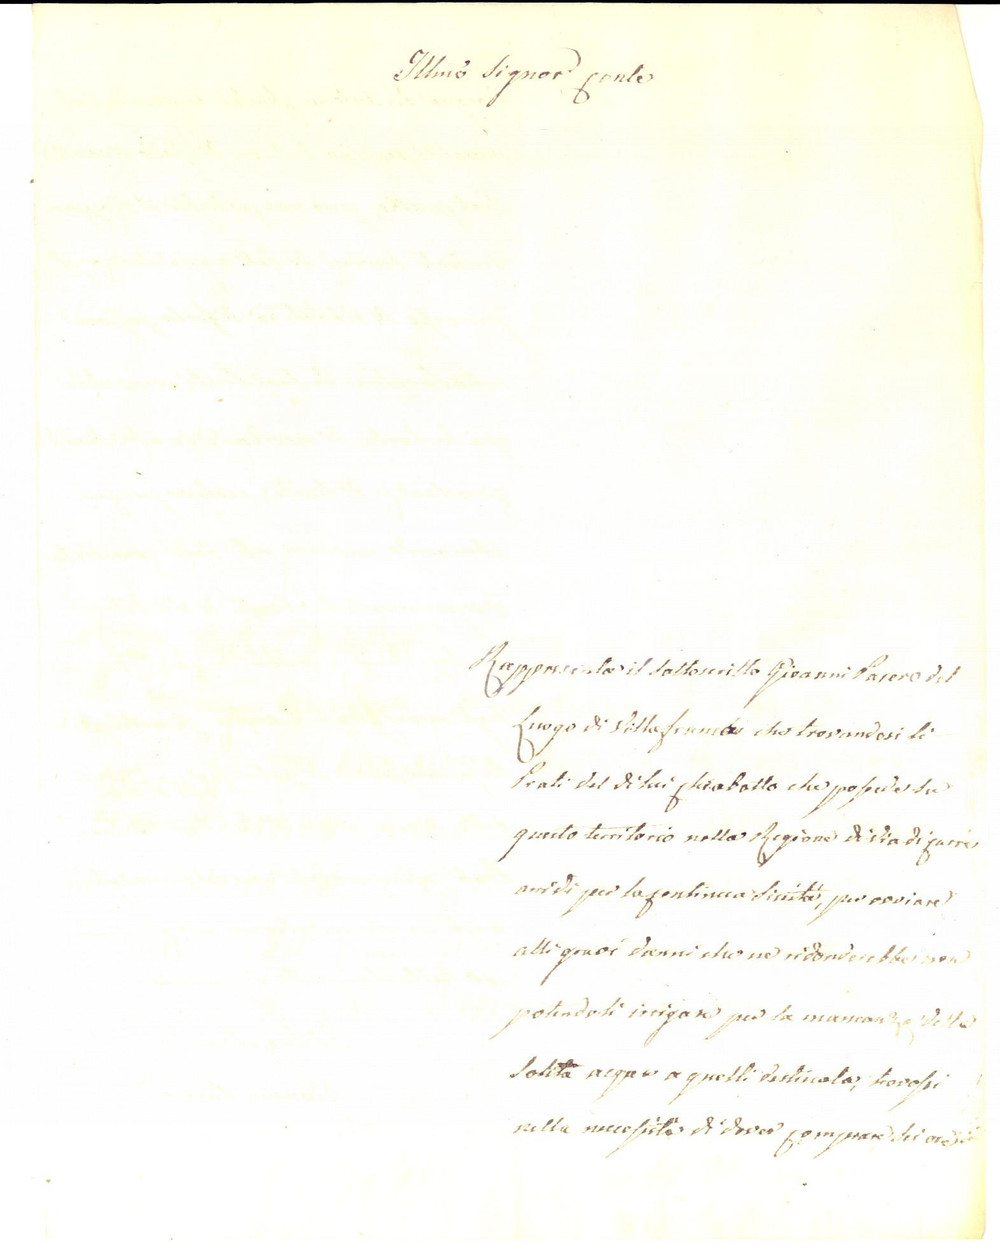 Illmo Signor Conte
Rappresenta il sottoscritto Giovanni Pasero del
Luogo di Villafranca che trovandosi li
Prati del di lui Chiabotto che possede su
questo territorio nella Regione di Via di
aridi per la continua siccità, per ovviare
alli gravi danni che ne ridonderebbe non
potendoli irrigare per la mancanza della
solita acqua a quelli destinata, trovasi
nella necessità di dover comprare sei ore